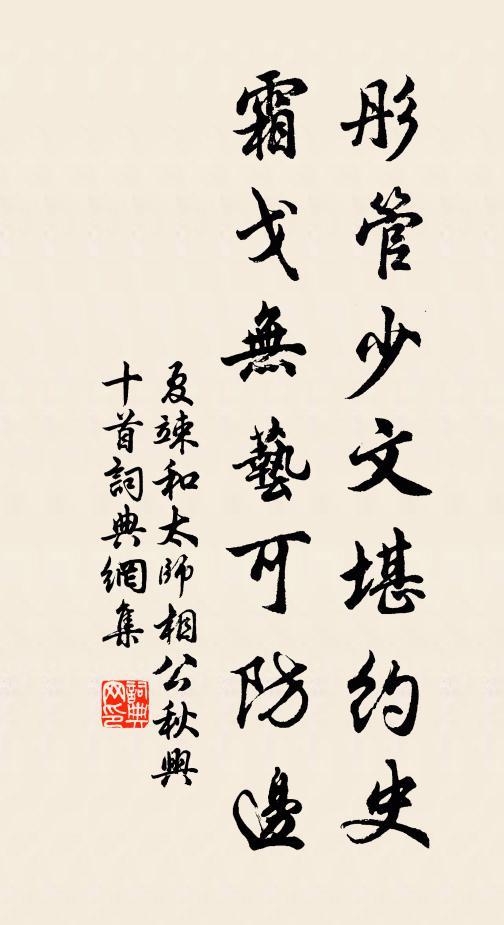 彤管少文堪約史
霜戈無藝可防邊
夏竦和太師相公秋興
十首詞典網集
詞典网印